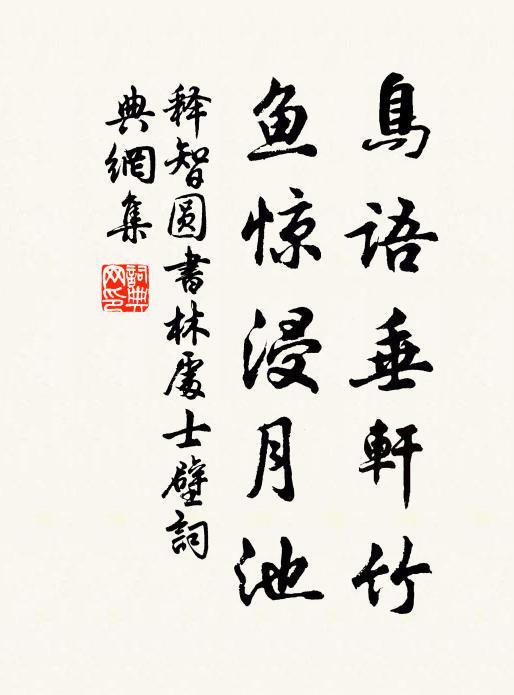 鳥語垂軒竹
鱼惊浸月池
释智圆書林處士壁詞
典網集
詞典网印